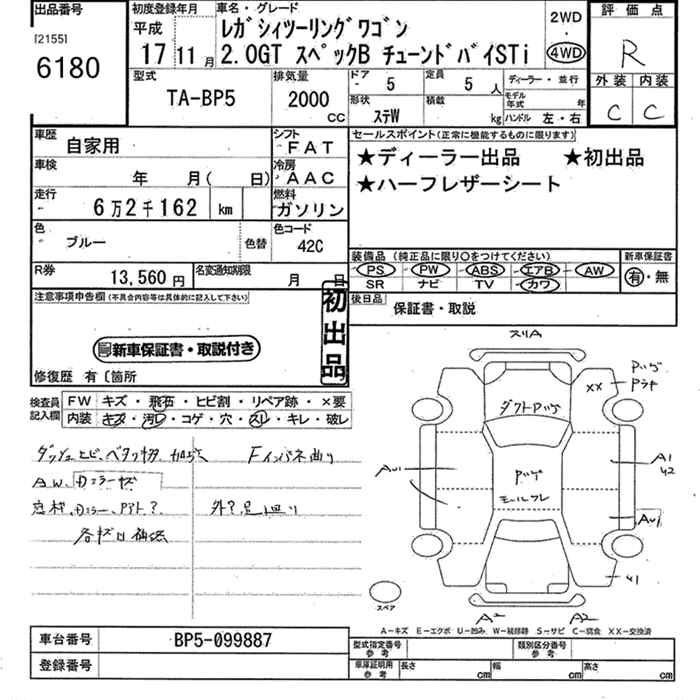 出品番号
[2155]
6180
初度登録年月
平成
17 11月
車名・グレード
レガシィツーリングワゴン
2.0GT スペックB チューンドバイSTi
2WD
4WD
評価点
R
外装 内装
C C
型式
TA-BP5
排気量
2000
CC
ドア
5
定員
5 人
ディーラー・並行
形状
ステW
積載
kg
モデル年式 年
ハンドル 左・右
車歴
自家用
シフト
FAT
車検
年 月( 日)
冷房
AAC
走行
6万2千162 km
燃料
ガソリン
色
ブルー
色替
色コード
42C
セールスポイント(正常に機能するものに限ります)
★ディーラー出品 ★初出品
★ハーフレザーシート
装備品 (純正品に限り○をつけてください)
PS PW ABS エアB AW
SR ナビ TV カワ
新車保証書
有・無
R券
13,560 円
名変通知期限
月 日
後日品
保証書・取説
注意事項申告欄(不具合内容等は具体的に記入して下さい)
初出品
新車保証書・取説付き
修復歴 有〔箇所
検査員記入欄
FW キズ・飛石・ヒビ割・リペア跡・×要
内装 キズ・汚レ・コゲ・穴・スレ・キレ・破レ
スリA
XX
ダクトAッゲ
A1
A2
A2
スペア
A-キズ E-エクボ U-凹み W-補修跡 S-サビ C-腐食 XX-交換済
車台番号
BP5-099887
登録番号
型式指定番号
参考
類別区分番号
参考
車庫証明用
参考
長さ cm
幅 cm
高さ cm